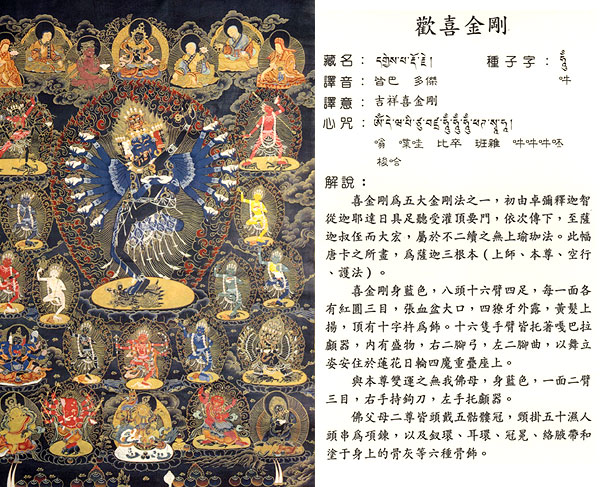 歡喜金剛
藏名：དགྱེས་པ་རྡོ་རྗེ། 種子字：ཧཱུྃ
譯音：皆巴 多傑 吽
譯意：吉祥喜金剛
心咒：
嗡 喋哇 比卒 班雜 吽吽吽呸
梭哈
解說：
喜金剛為五大金剛法之一，初由卓彌釋迦智
從迦耶達日具足聽受灌頂要門，依次傳下，至薩
迦叔侄而大宏，屬於不二續之無上瑜珈法。此幅
唐卡之所畫，為薩迦三根本（上師、本尊、空行
、護法）。
喜金剛身藍色，八頭十六臂四足，每一面各
有紅圓三目，張血盆大口，四獠牙外露，黃髮上
揚，頂有十字杵為飾。十六隻手臂皆托著嘎巴拉
顱器，內有盛物，右二腳弓，左二腳曲，以舞立
姿安住於蓮花日輪四魔重疊座上。
與本尊雙運之無我佛母，身藍色，一面二臂
三目，右手持鉤刀，左手托顱器。
佛父母二尊皆頭戴五骷髏冠，頸掛五十濕人
頭串為項鍊，以及釵環、耳環、冠冕、絡腋帶和
塗于身上的骨灰等六種骨飾。